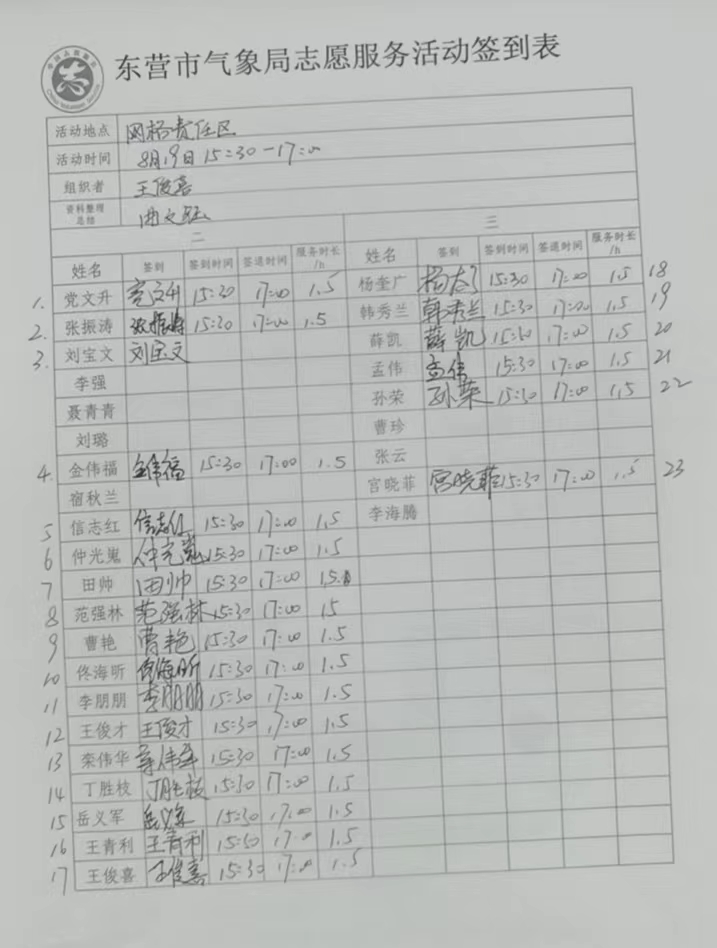 东营市气象局志愿服务活动签到表
活动地点 网格责任区
活动时间 8月19日 15:30-17:00
组织者 王俊喜
资料整理总结 曲文
二 三
姓名 签到 签到时间 签退时间 服务时长/h 姓名 签到 签到时间 签退时间 服务时长/h
杨奎广 15:30 17:00 1.5 18
1. 党文升 党文升 15:30 17:00 1.5 韩秀兰 韩秀兰 15:30 17:00 1.5 19
2. 张振涛 张振涛 15:30 17:00 1.5 薛凯 薛凯 15:30 17:00 1.5 20
3. 刘宝文 刘宝文 孟伟 孟伟 15:30 17:00 1.5 21
李强 孙荣 孙荣 15:30 17:00 1.5 22
聂青青 曹珍
刘璐 张云
4. 金伟福 金伟福 15:30 17:00 1.5 宫晓菲 宫晓菲 15:30 17:00 1.5 23
宿秋兰 李海腾
5 信志红 信志红 15:30 17:00 1.5
6 仲光嵬 仲光嵬 15:30 17:00 1.5
7 田帅 田帅 15:30 17:00 1.5
8 范强林 范强林 15:30 17:00 15
9 曹艳 曹艳 15:30 17:00 1.5
10 佟海昕 佟海昕 15:30 17:00 1.5
11 李朋朋 李朋朋 15:30 17:00 1.5
12 王俊才 王俊才 15:30 17:00 1.5
13 栾伟华 栾伟华 15:30 17:00 1.5
14 丁胜枝 丁胜枝 15:30 17:00 1.5
15 岳义军 岳义军 15:30 17:00 1.5
16 王青利 王青利 15:30 17:00 1.5
17 王俊喜 王俊喜 15:30 17:00 1.5